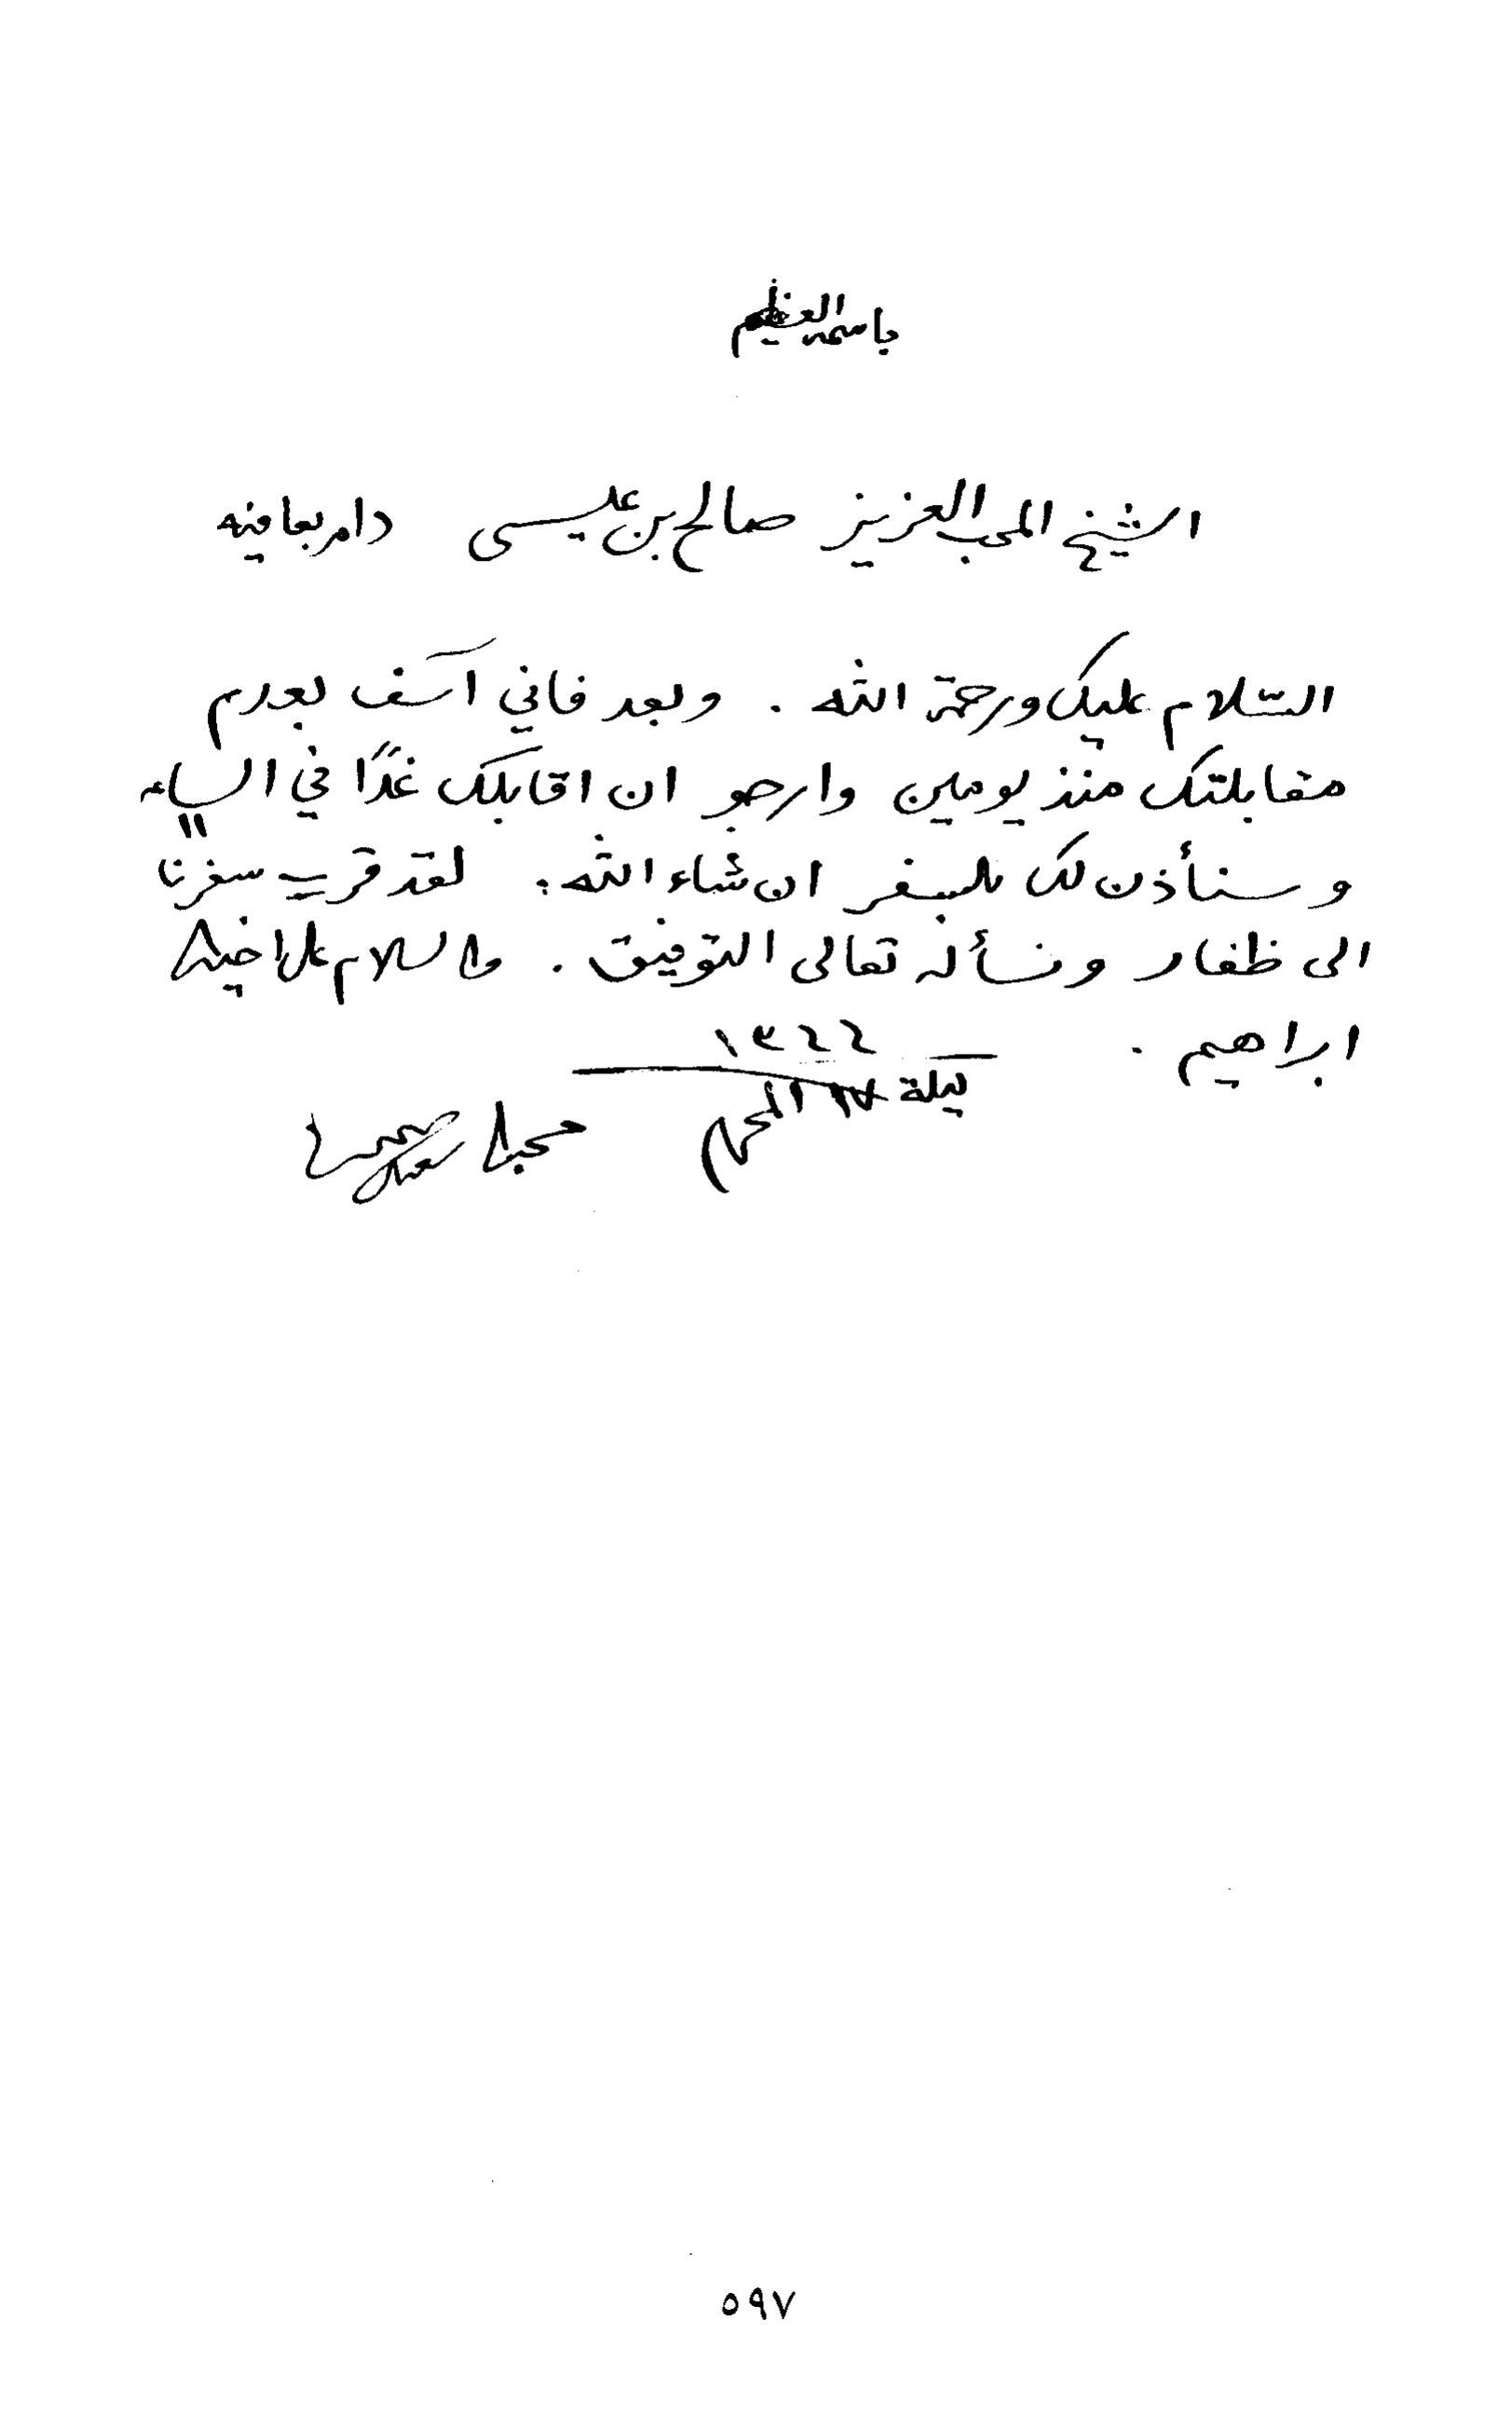 باسمه العظيم
الشيخ المحب العزيز صالح بن عيسى دام بعافيه
السّلام عليك ورحمة الله . وبعد فاني آسف لعدم
مقابلتك منذ يومين وارجو ان اقابلك غدًا في المساء
وسنأذن لك للسفر ان شاء الله . لقد قرب سفرنا
الى ظفار ونسأله تعالى التوفيق . والسلام على اخيك
ابراهيم . ١٣٦٦
ليلة المحرم
محبك سعيد
٥٩٧